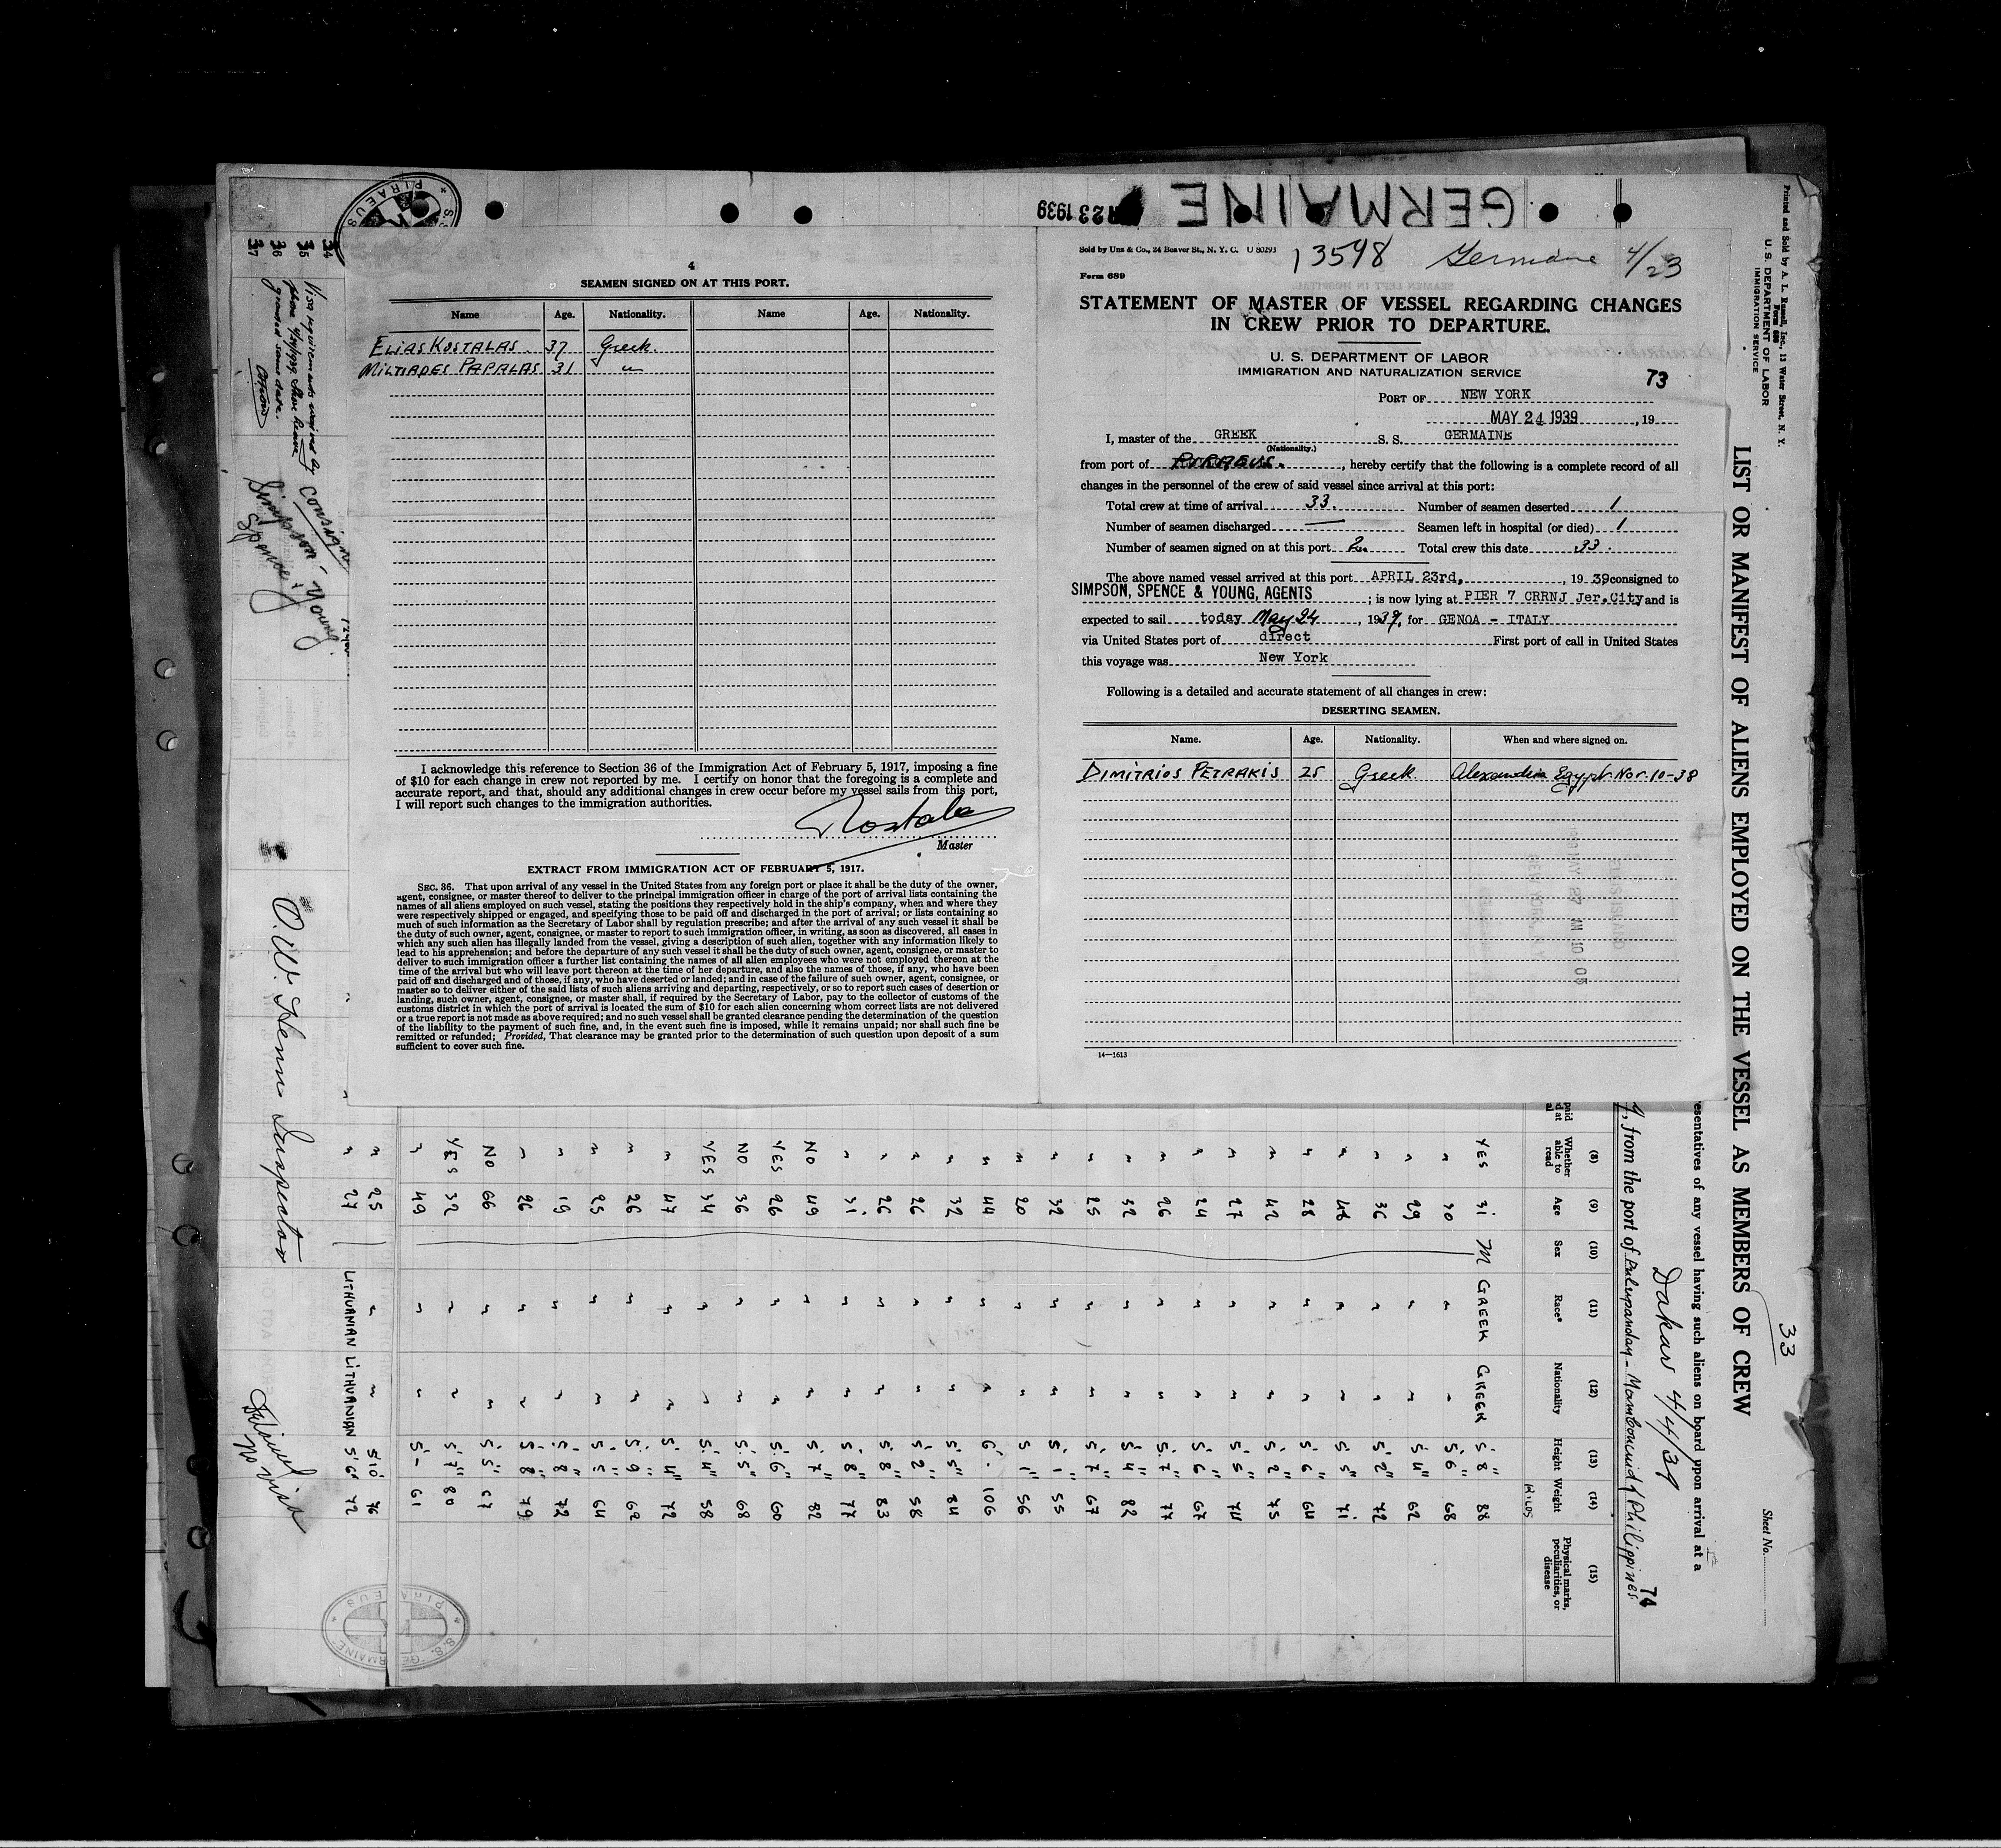 GERMAINE
23 1939
4
SEAMEN SIGNED ON AT THIS PORT.
Name Age. Nationality. Name Age. Nationality.
ELIAS KOSTALAS. 37 Greek.
MILTIADES PAPALAS 31 "
I acknowledge this reference to Section 36 of the Immigration Act of February 5, 1917, imposing a fine
of $10 for each change in crew not reported by me. I certify on honor that the foregoing is a complete and
accurate report, and that, should any additional changes in crew occur before my vessel sails from this port,
I will report such changes to the immigration authorities.
Master
EXTRACT FROM IMMIGRATION ACT OF FEBRUARY 5, 1917.
SEC. 36. That upon arrival of any vessel in the United States from any foreign port or place it shall be the duty of the owner,
agent, consignee, or master thereof to deliver to the principal immigration officer in charge of the port of arrival lists containing the
names of all aliens employed on such vessel, stating the positions they respectively hold in the ship's company, when and where they
were respectively shipped or engaged, and specifying those to be paid off and discharged in the port of arrival; or lists containing so
much of such information as the Secretary of Labor shall by regulation prescribe; and after the arrival of any such vessel it shall be
the duty of such owner, agent, consignee, or master to report to such immigration officer, in writing, as soon as discovered, all cases in
which any such alien has illegally landed from the vessel, giving a description of such alien, together with any information likely to
lead to his apprehension; and before the departure of any such vessel it shall be the duty of such owner, agent, consignee, or master to
deliver to such immigration officer a further list containing the names of all alien employees who were not employed thereon at the
time of the arrival but who will leave port thereon at the time of her departure, and also the names of those, if any, who have been
paid off and discharged and of those, if any, who have deserted or landed; and in case of the failure of such owner, agent, consignee, or
master so to deliver either of the said lists of such aliens arriving and departing, respectively, or so to report such cases of desertion or
landing, such owner, agent, consignee, or master shall, if required by the Secretary of Labor, pay to the collector of customs of the
customs district in which the port of arrival is located the sum of $10 for each alien concerning whom correct lists are not delivered
or a true report is not made as above required; and no such vessel shall be granted clearance pending the determination of the question
of the liability to the payment of such fine, and, in the event such fine is imposed, while it remains unpaid; nor shall such fine be
remitted or refunded; Provided, That clearance may be granted prior to the determination of such question upon deposit of a sum
sufficient to cover such fine.
Sold by Unz & Co., 24 Beaver St., N. Y. C. U 80293
13598 Germaine 4/23
Form 689
STATEMENT OF MASTER OF VESSEL REGARDING CHANGES
IN CREW PRIOR TO DEPARTURE.
U. S. DEPARTMENT OF LABOR
IMMIGRATION AND NATURALIZATION SERVICE
73
PORT OF NEW YORK
MAY 24 1939, 19
I, master of the GREEK S. S. GERMAINE
(Nationality.)
from port of PIRAEUS., hereby certify that the following is a complete record of all
changes in the personnel of the crew of said vessel since arrival at this port:
Total crew at time of arrival 33. Number of seamen deserted 1
Number of seamen discharged — Seamen left in hospital (or died) 1
Number of seamen signed on at this port 2. Total crew this date 33.
The above named vessel arrived at this port APRIL 23rd, , 1939 consigned to
SIMPSON, SPENCE & YOUNG, AGENTS ; is now lying at PIER 7 CRRNJ Jer.City and is
expected to sail today May 24, 1939. for GENOA - ITALY
via United States port of direct First port of call in United States
this voyage was New York
Following is a detailed and accurate statement of all changes in crew:
DESERTING SEAMEN.
Name. Age. Nationality. When and where signed on.
DIMITRIOS PETRAKIS 25 Greek Alexandria Egypt Nov-10-38
14—1613
Printed and Sold by A. L. Russell, Inc., 13 Water Street, N. Y.
Form 680
U. S. DEPARTMENT OF LABOR
IMMIGRATION SERVICE
LIST OR MANIFEST OF ALIENS EMPLOYED ON THE VESSEL AS MEMBERS OF CREW
33
Sheet No.
esentatives of any vessel having such aliens on board upon arrival at a
Dakar 4/4/39
, from the port of Pulupandan - Mambouund / Philippines
74
(8) (9) (10) (11) (12) (13) (14) (15)
Whether able to read Age Sex Race* Nationality Height Weight Physical marks, peculiarities, or disease
KILOS
YES 31 M GREEK GREEK 5'8" 88
" 30 " " 5'6" 68
" 29 " " 5'4" 62
" 36 " " 5'2" 72
" 48 " " 5'5" 71
" 28 " " 5'6" 64
" 42 " " 5'2" 75
" 27 " " 5'5" 74
" 24 " " 5'6" 67
" 26 " " 5'7" 77
" 32 " " 5'4" 82
" 25 " " 5'7" 67
" 32 " " 5'1" 55
" 20 " " 5'1" 56
" 44 " " 6'. 106
" 32 " " 5'5" 84
" 26 " " 5'2" 58
" 26 " " 5'8" 83
" 31 " " 5'8" 77
NO 49 " " 5'7" 82
YES 26 " " 5'6" 60
NO 36 " " 5'5" 68
YES 34 " " 5'4" 58
" 47 " " 5'4" 72
" 26 " " 5'9" 62
" 25 " " 5'5" 64
" 19 " " 5'8" 72
" 26 " " 5'8" 79
NO 66 " " 5'5" 67
YES 32 " " 5'7" 80
" 49 " " 5'- 61
" 25 " " 5'10" 76
" 27 LITHUANIAN LITHUANIAN 5'6" 72
34
35
36
37
Visa requirements waived by
phone 4/20/1939. Shore leave
granted same date.
consigne
Simpson
Spence &
Young
Inspector
No Visa
S.S. "GERMAINE" * PIRAEUS *